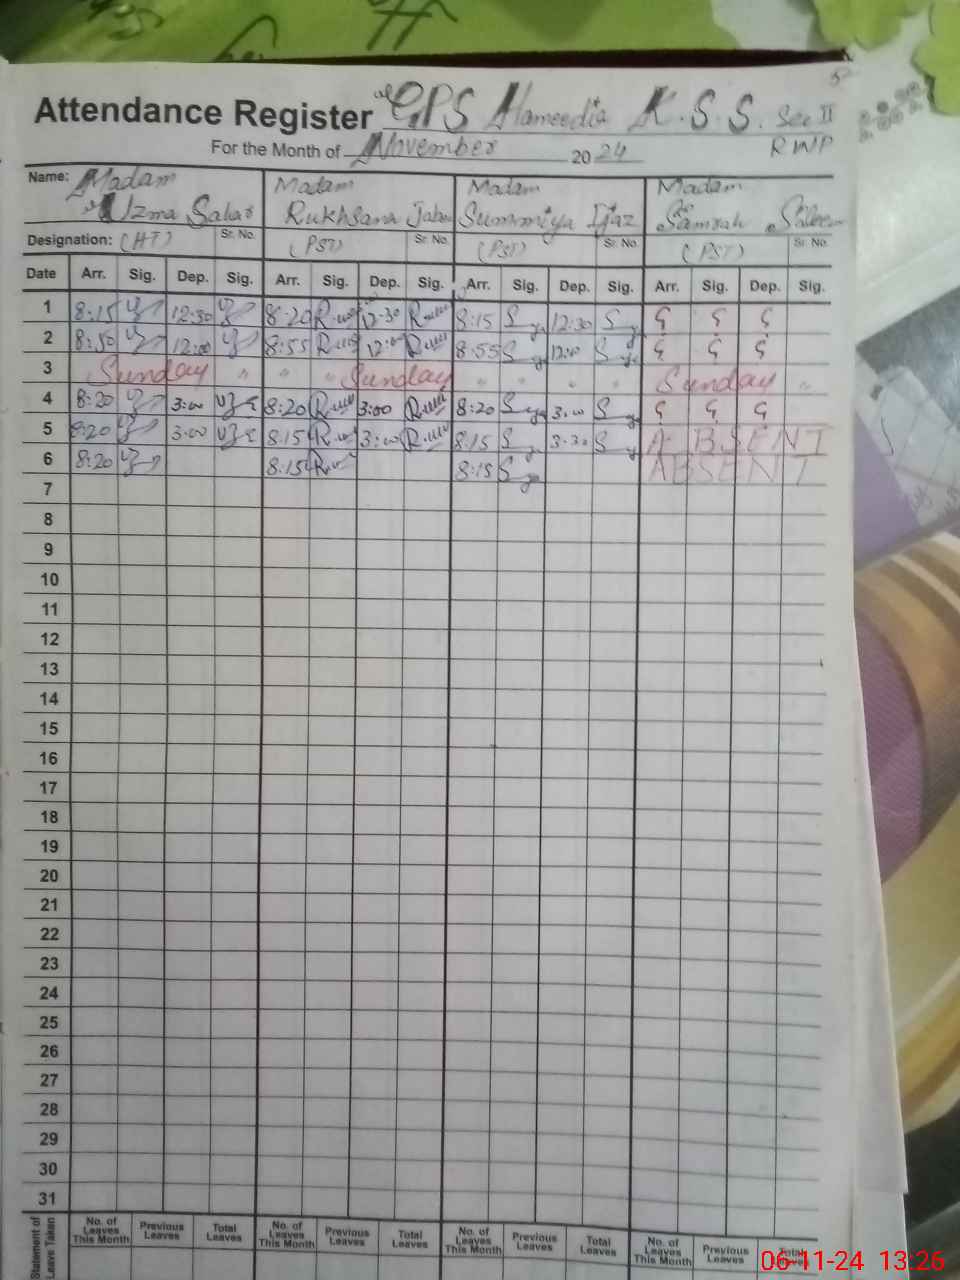 Attendance Register GPS Hameedia K.S.S. Sec II
For the Month of November 2024 RWP
Name: Madam Madam Madam Madam
Uzma Sahar Rukhsana Jabeen Summiya Ijaz Samrah Saleem
Designation: (HT) Sr. No. (PST) Sr. No. (PST) Sr. No. (PST) Sr. No.
Date Arr. Sig. Dep. Sig. Arr. Sig. Dep. Sig. Arr. Sig. Dep. Sig. Arr. Sig. Dep. Sig.
1 8:15 12:30 8:20 12:30 8:15 12:30
2 8:50 12:00 8:55 12:00 8:55 12:00
3 Sunday " " " Sunday " " " " Sunday "
4 8:20 3:00 8:20 3:00 8:20 3:00
5 8:20 3:00 8:15 3:00 8:15 3:30 ABSENT
6 8:20 8:15 8:15 ABSENT
7
8
9
10
11
12
13
14
15
16
17
18
19
20
21
22
23
24
25
26
27
28
29
30
31
Statement of Leave Taken
No. of Leaves This Month Previous Leaves Total Leaves No. of Leaves This Month Previous Leaves Total Leaves No. of Leaves This Month Previous Leaves Total Leaves No. of Leaves This Month Previous Leaves Total Leaves
06-11-24 13:26